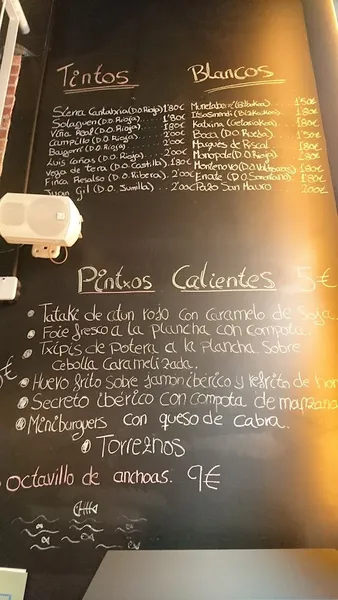 Tintos
Sierra Cantabria (D.O Rioja) 1'80€
Solaguen (D.O. Rioja) 1'80€
Viña Real (D.O. Rioja) 2'00€
Campillo (D.O. Rioja) 2'00€
(D.O. Rioja) 2'00€
Luis Cañas (D.O. Rioja) 2'00€
Vega de Tera (D.O. Castilla) 1.80€
Finca Resalso (D.O. Ribera) 2'00€
Juan Gil (D.O. Jumilla) 2'00€
Blancos
(Bizkaia) 1'50€
Itsasmendi (Bizkaia) 1'80€
Katxina (Getariako) 1'80€
(D.O. Rueda) 1'50€
Marques de Riscal 1'80€
Monopole (D.O. Rioja) 1'80€
Montenovo (D.O. Valdeorras) 1'80€
Enate (D.O. Somontano) 1'80€
Pazo San Mauro 2'00€
Pintxos Calientes 5€
Tataki de atun rojo con caramelo de Soja.
Foie fresco a la plancha con compota.
Txipis de Potera a la Plancha Sobre
Cebolla Caramelizada.
Huevo frito Sobre jamon ibérico y refrito de
Secreto ibérico con compota de manzana
Miniburguers con queso de cabra.
Torreznos
octavillo de anchoas. 9€